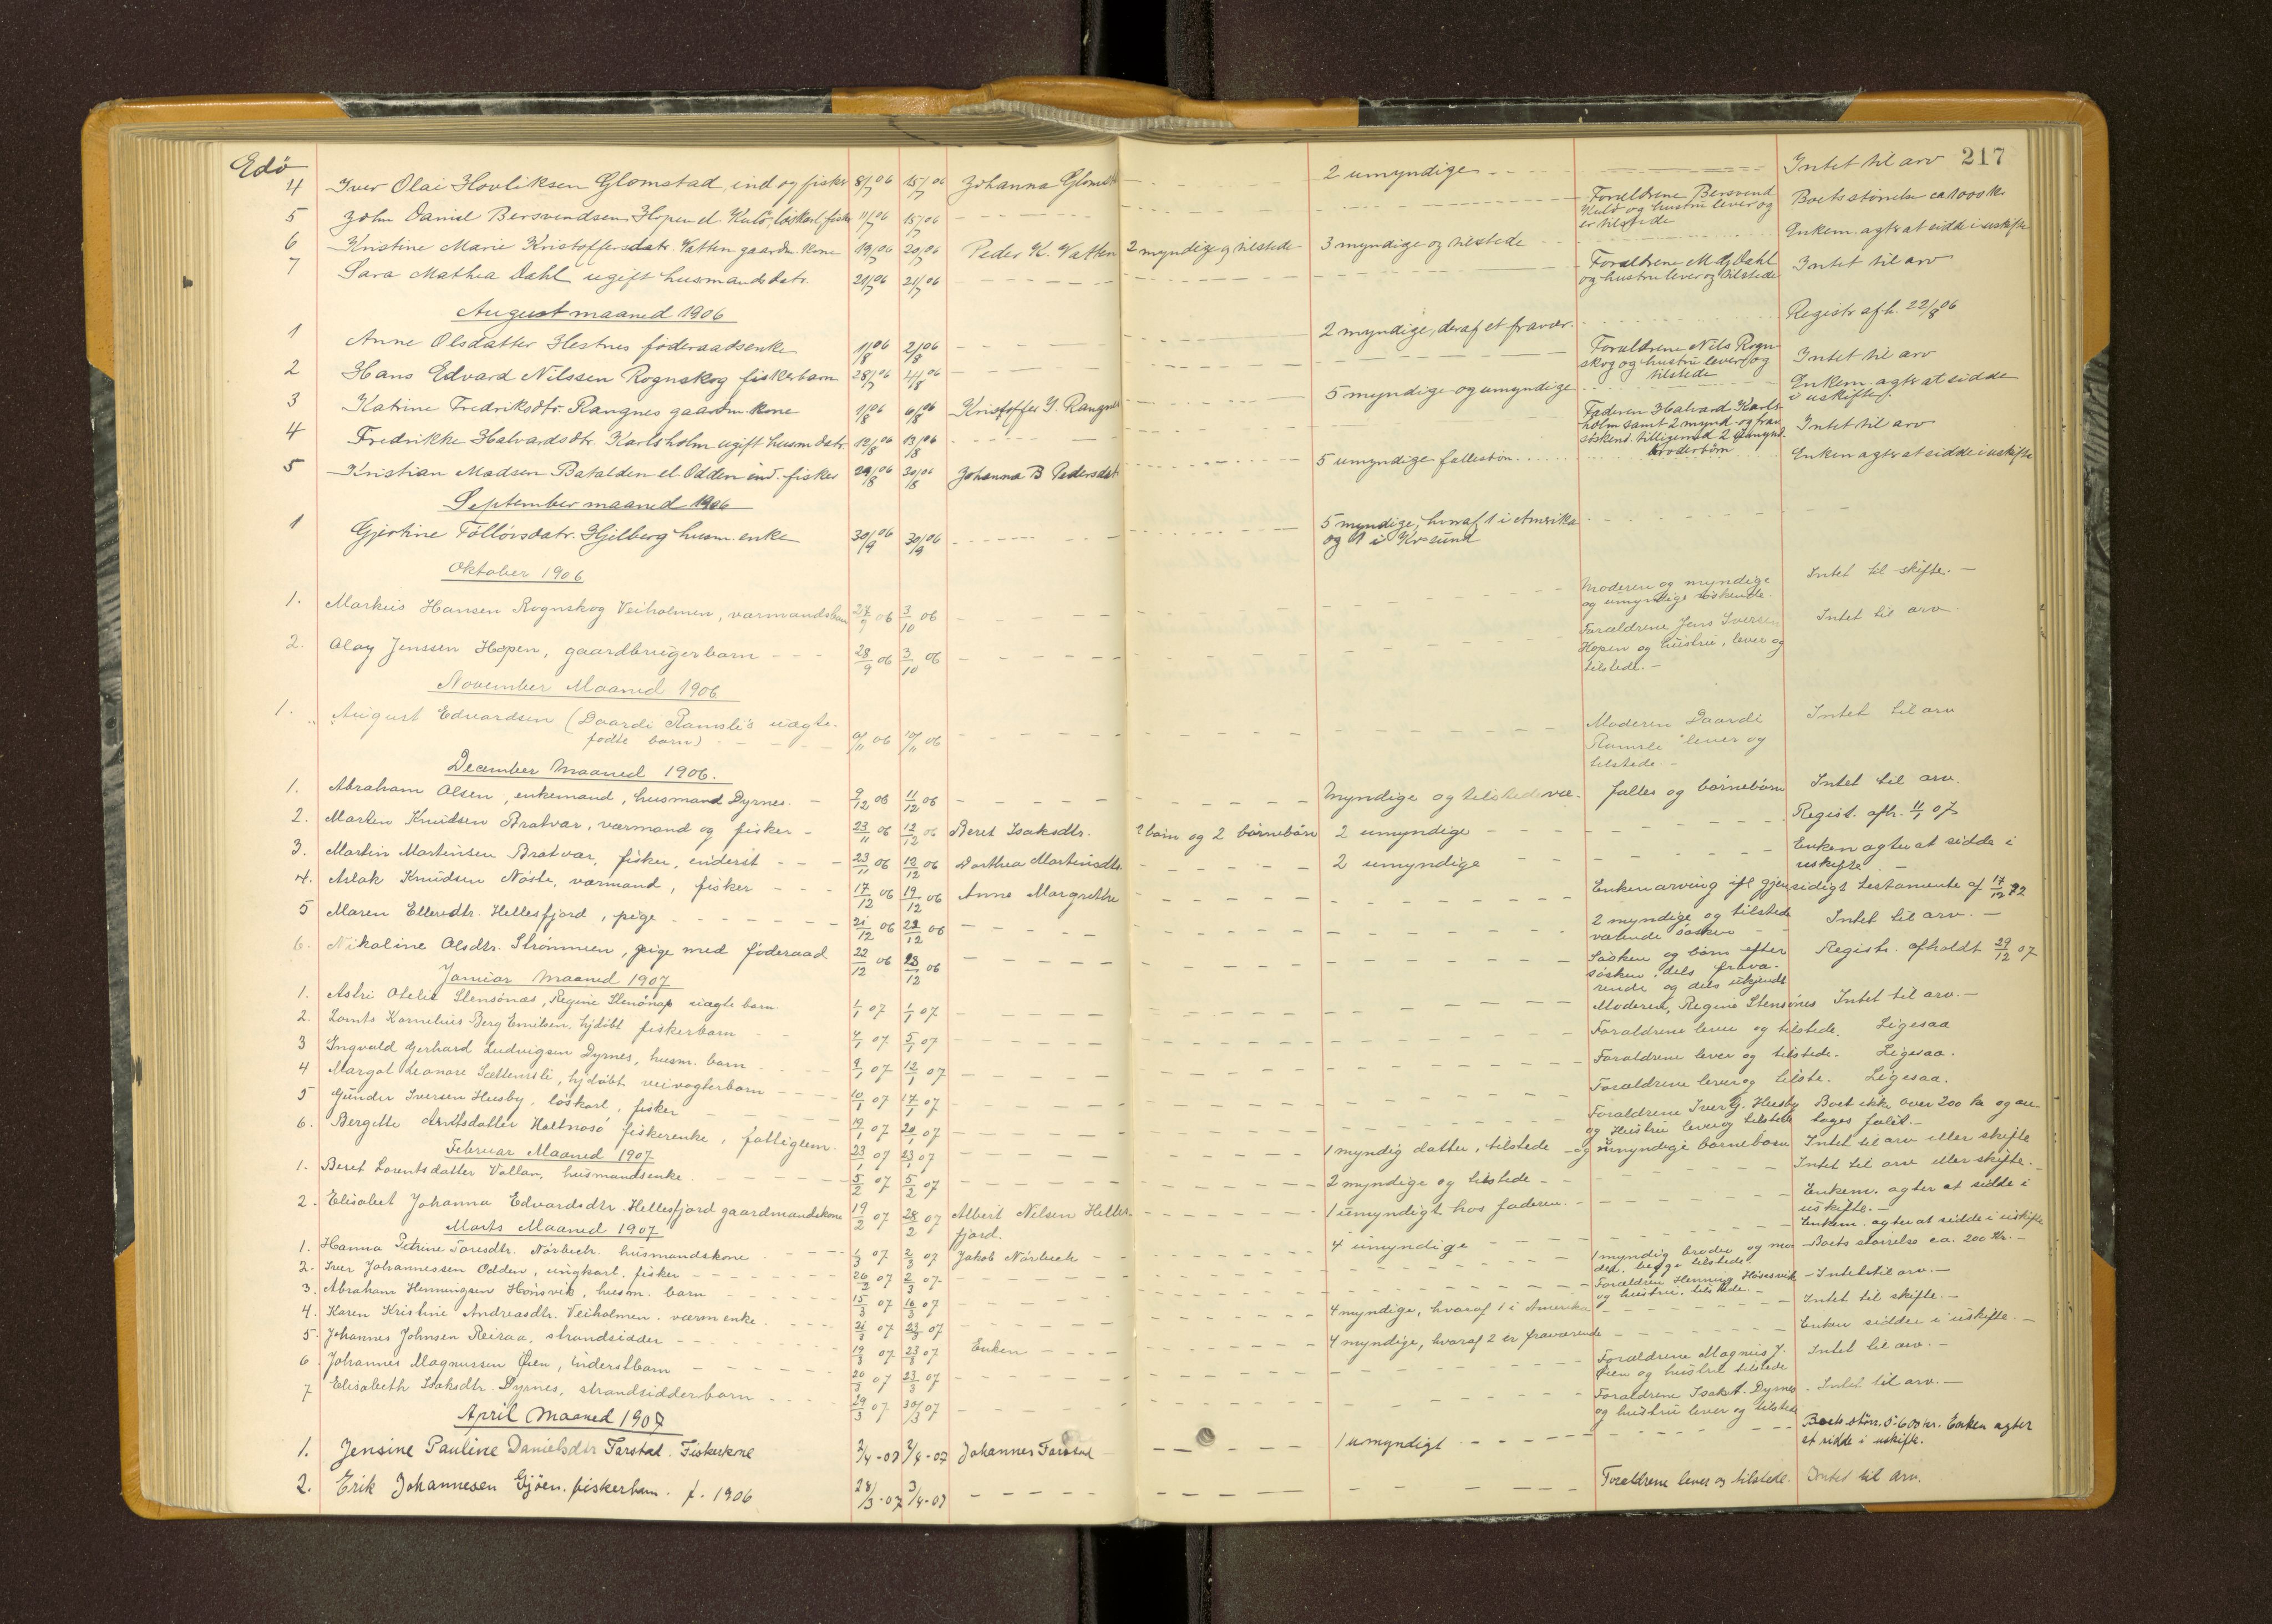 Edö
217
4 Iver Olai Hovliksen Glomstad, ind og fisker 8/7 06 15/7 06 Johanna Glomst. 2 umyndige Intet til arv
5 John Daniel Bersvendsen Hopen el. Kulö, löskarl, fisker 11/7 06 15/7 06 Forældrene Bersvend Boets störrelse ca 1000 kr
Kulö og hustru lever og
er tilstede
6 Kristine Marie Kristoffersdatr. Vatten gaardm kone 19/7 06 20/7 06 Peder K. Vatten 2 myndige og tilstede 3 myndige og tilstede Enkem. agter at sidde i uskifte
7 Sara Mathea Dahl ugift husmandsdatr. 20/7 06 21/7 06 Forældrene M. Dahl Intet til arv
og hustru lever og tilstede
August maaned 1906
1 Anne Olsdatter Hestnes föderaadsenke 1/8 06 2/8 06 2 myndige, deraf et fravær. Registr afh. 22/8 06
2 Hans Edvard Nilssen Rognskog fiskerbarn 28/7 06 4/8 06 Forældrene Nils Rogn Intet til arv
skog og hustru lever og
tilstede
3 Katrine Fredriksdtr. Rangnes gaardm kone 1/8 06 6/8 06 Kristoffer I. Rangnes 5 myndige og umyndige Enkem. agter at sidde
i uskifte.
4 Fredrikke Halvardsdtr. Karlsholm ugift husm datr 12/8 06 13/8 06 Faderen Halvard Karls Intet til arv
holm samt 2 mynd og frav
söskend. tilligemed 2 umynd.
broderbörn
5 Kristian Madsen Batalden el Odden ind. fisker 29/8 06 30/8 06 Johanna B Pedersdatr 5 umyndige fællesbörn Enken agter at sidde i uskifte
September maaned 1906
1 Gjertine Föllövsdatr. Hjelberg husm. enke 30/9 06 30/9 06 5 myndige, hvoraf 1 i Amerika
og 1 i Kr=sund
Oktober 1906
1. Markus Hansen Rognskog Veiholmen, værmandsbarn 27/9 06 3/10 06 Moderen og myndige Intet til skifte. —
og umyndige söskende.
2. Olay Jenssen Hopen, gaardbrugerbarn 28/9 06 3/10 06 Forældrene Jens Iversen Intet til arv
Hopen og hustru, lever og
tilstede. —
November Maaned 1906
1. August Edvardsen (Daardi Ramsli's uægte- Moderen Daardi Intet til arv
födte barn) 06 10/11 06 Ramsli lever og
tilstede —
December Maaned 1906.
1. Abraham Olsen, enkemand, husmand Dyrnes. 9/12 06 11/12 06 Myndige og tilstedevæ- fælles og börnebörn Intet til arv.
2. Marten Knudsen Bratvær, værmand og fisker 23/11 06 12/12 06 Beret Isaksdtr. 2 börn og 2 börnebörn 2 umyndige Regist. afh. 11/1 07
3. Martin Martinsen Bratvær, fisker, inderst 23/11 06 12/12 06 Dorthea Martinsdtr 2 umyndige Enken agter at sidde i
uskifte —
4. Aslak Knudsen Nöste, værmand, fisker 17/12 06 19/12 06 Anne Margrethe Enken arving ifl gjensidigt testamente af 17/12 92
5 Maren Ellevsdtr. Hellesfjord, pige 21/12 06 22/12 06 2 myndige og tilstede Intet til arv. —
værende sösken
6. Nikoline Olsdtr. Strömmen, pige med föderaad 22/12 06 28/12 06 Sösken og börn efter Registr. afholdt 29/12 07
sösken, dels fravæ-
rende og dels ukjendt
Januar Maaned 1907
1. Astri Otelie Stensönæs, Regine Stensönæs uægte barn 1/1 07 1/1 07 Moderen, Regine Stensönes Intet til arv. —
2. Lornts Kornelius Berg Emilsen, hjdöbt fiskerbarn 4/1 07 5/1 07 Forældrene lever og tilstede. Ligesaa
3 Ingvald Gerhard Ludvigsen Dyrnes, husm. barn 9/1 07 12/1 07 Forældrene lever og tilstede. Ligesaa.
4 Margot Leonore Sættemsli, hjdöbt veivogterbarn 10/1 07 17/1 07 Forældrene lever og tilste. Ligesaa.
5 Gunder Iversen Husby, löskarl, fisker 19/1 07 20/1 07 Forældrene Iver G. Husby Boet ikke over 200 kr og an
og Hustru lever og tilstede tages falit. —
6. Bergitte Arntsdatter Holtnasö fiskerenke, fattiglem. 23/1 07 23/1 07 1 myndig datter, tilstede og umyndige börnebörn Intet til arv eller skifte
Februar Maaned 1907
1. Beret Lorentsdatter Vollan, husmandsenke 5/2 07 5/2 07 2 myndige og tilstede Intet til arv eller skifte.
2. Elisabet Johanna Edvardsdtr. Hellesfjord gaardmandskone 19/2 07 28/2 07 Albert Nilsen Helles- 1 umyndigt hos faderen. Enkem. agter at sidde i
fjord. uskifte. —
Marts Maaned 1907
1. Hanna Petrine Toresdtr. Nörbech. husmandskone 1/3 07 2/3 07 Jakob Nörbech 4 umyndige Enkem. agter at sidde i uskifte
2. Iver Johannessen Odden, ungkarl, fisker 26/2 07 2/3 07 1 myndig broder og mo Boets störrelse ca. 200 Kr. —
der, begge tilstede
3. Abraham Henningsen Hönsvik, husm. barn 15/3 07 16/3 07 Forældren Henning Hösesvik Intet til arv. —
og hustru, tilstede. —
4. Karen Kristine Andreasdtr. Veiholmen. værm enke. 21/3 07 23/3 07 4 myndige, hvoraf 1 i Amerika Intet til skifte. —
5. Johannes Johnsen Reiraa, strandsidder 19/3 07 23/3 07 Enken 4 myndige, hvoraf 2 er fraværende Enken sidder i uskifte. —
6. Johannes Magnussen Öien, inderstbarn 20/3 07 23/3 07 Forældrene Magnus J. Intet til arv. —
Öien og hustru tilstede
7 Elisabeth Isaksdtr. Dyrnes, strandsidderbarn 29/3 07 30/3 07 Forældrene Isak A. Dyrnes Intet til arv. —
og hustru lever og tilstede
April Maaned 1907
1. Jensine Pauline Danielsdtr Tarstad. Fiskerkone 2/4-07 2/4-07 Johannes Farstad 1 umyndigt Boets störr. 5-600 kr. Enken agter
at sidde i uskifte.
2. Erik Johannesen Gjöen. fiskerbarn. f. 1906 28/3-07 3/4-07 Forældrene lever og tilstede. Intet til arv.